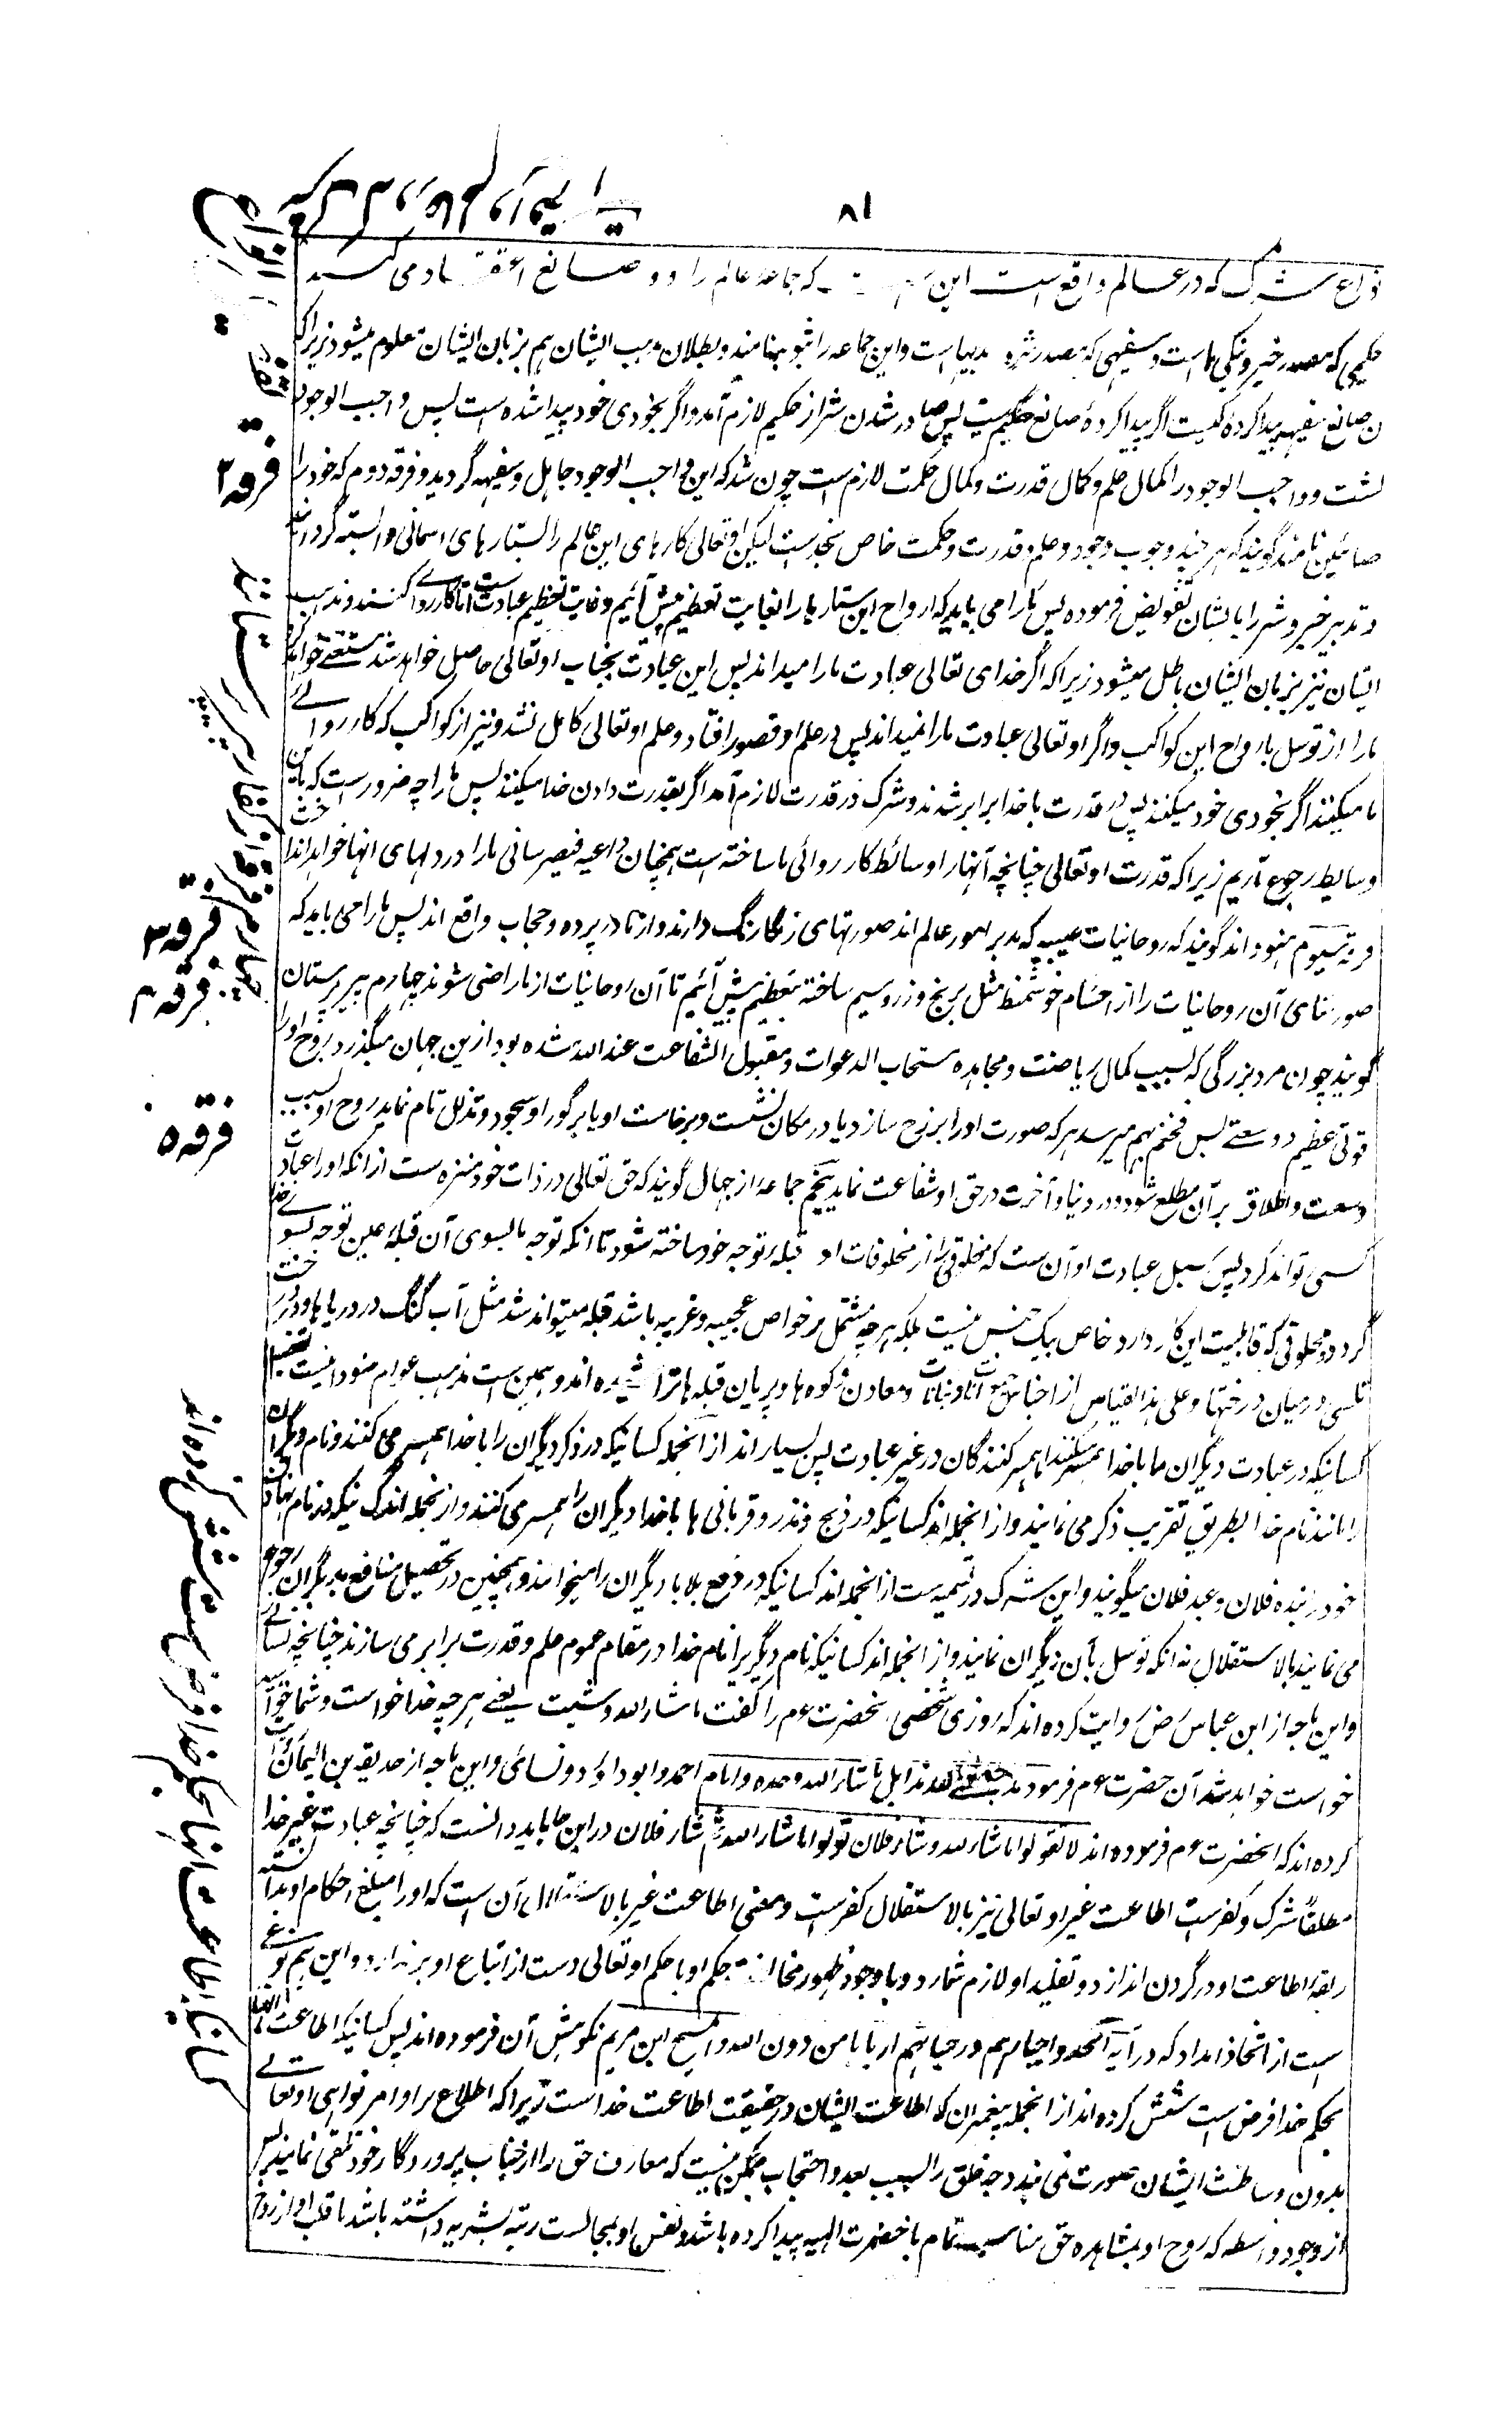 ۸۱
شرک که در عالم واقع است این که جماعهٔ عالم را دو صانع اعتقاد می کنند
حکیمی که مصدر خیر و نیکی هاست و سفیهی که مصدر شر و بدیهاست و این جماعه را ثنویه نامند و بطلان مذهب ایشان هم بزبان ایشان معلوم میشود زیرا که
صانع سفیه پیدا کردهٔ کیست اگر پیدا کردهٔ صانع حکیم ست پس صادر شدن شر از حکیم لازم آمد و اگر بخودی خود پیدا شده است پس واجب الوجود
گشت و واجب الوجود را کمال علم و کمال قدرت و کمال حکمت لازم است چون شد که این واجب الوجود جاهل و سفیه گردید و فرقه دوم که خود را
صابئین نامند گویند که هر چند وجوب وجود و علم و قدرت و حکمت خاص بخداست لیکن او تعالی کارهای این عالم را بستارهای آسمانی وابسته گردانیده
و تدبیر خیر و شر را بایشان تفویض فرموده پس ما را می باید که ارواح این ستارها را بغایت تعظیم پیش آئیم و غایت تعظیم عبادت است تا کار روائی ما کنند و مذهب
ایشان نیز بزبان ایشان باطل میشود زیرا که اگر خدای تعالی عبادت ما را میداند پس این عبادت بجناب او تعالی حاصل خواهد شد مستغنی خواهد کرد
ما را از توسل بارواح این کواکب و اگر او تعالی عبادت ما را نمیداند پس در علم او قصور افتاد و علم او تعالی کامل نشد و نیز از کواکب که کار روائی
ما میکنند اگر بخودی خود میکنند پس در قدرت با خدا برابر شدند و شرک در قدرت لازم آمد اگر بقدرت دادن خدا میکنند پس ما را چه ضرورست که باین
وسایط رجوع آریم زیرا که قدرت او تعالی چنانچه آنها را وسائط کار روائی ما ساخته است همچنان داعیه فیض رسانی ما را در دلهای انها خواهد انداخت
فرقه سیوم هنود اند گویند که روحانیات غیبیه که مدبر امور عالم اند صورتهای رنگارنگ دارند و از ما در پرده و حجاب واقع اند پس ما را می باید که
صورتهای آن روحانیات را از اجسام خوشنما مثل برنج و زر و سیم ساخته بتعظیم پیش آئیم تا آن روحانیات از ما راضی شوند چهارم پیر پرستان
گویند چون مرد بزرگی که بسبب کمال ریاضت و مجاهده مستجاب الدعوات و مقبول الشفاعت عند الله شده بود ازین جهان میگذرد بروح او را
قوتی عظیم و وسعتی بس فخیم بهم میرسد هر که صورت او را برزخ سازد یا در مکان نشست و برخاست او یا بر گور او سجود و تذلل تام نماید روح او بسبب
وسعت و اطلاق بر آن مطلع شود و در دنیا و آخرت در حق او شفاعت نماید پنجم جماعه از جهال گویند که حق تعالی در ذات خود منزه ست از انکه او را عبادت
کسی تواند کرد پس سبیل عبادت او آن ست که مخلوقی را از مخلوقات او قبلهٔ توجه خود ساخته شود تا انکه توجه ما بسوی آن قبله عین توجه بسوی خدا
گردد و مخلوقی که قابلیت این کار دارد خاص بیک جنس نیست بلکه هر چه مشتمل بر خواص عجیبه و غریبه باشد قبله میتواند شد مثل آب گنگ در دریاها و درخت
تلسی در میان درختها و علی هذا القیاس از اجناس حیوانات و نباتات و معادن و کوه ها و پریان قبله ها تراشیده اند و همین ست مذهب عوام هنود
کسانیکه در عبادت دیگران را با خدا همسر میکنند اما همسر کنندگان در غیر عبادت پس بسیار اند از آنجمله کسانیکه در ذکر دیگران را با خدا همسر می کنند و نام دیگران
را مانند نام خدا بطریق تقرب ذکر می نمایند و از انجمله اند کسانیکه در ذبح و نذر و قربانی ها با خدا دیگران را همسر می کنند و از انجمله اند کسانیکه در نام نهادن
خود را بنده فلان و عبد فلان میگویند و این شرک در تسمیه ست از انجمله اند کسانیکه در دفع بلا دیگران را میخوانند و همچنین در تحصیل منافع بدیگران رجوع
می نمایند بالاستقلال نه انکه توسل بآن دیگران نمایند و از انجمله اند کسانیکه نام دیگری را با نام خدا در مقام عموم علم و قدرت برابر می سازند چنانچه نسائی
و ابن ماجه از ابن عباس رض روایت کرده اند که روزی شخصی آنحضرت م را گفت ما شاء الله و شئت یعنی هر چه خدا خواست و شما خواسته
خواست خواهد شد آن حضرت م فرمودند جعلتنی لله ندا بل ما شاء الله وحده و امام احمد و ابو داؤد و نسائی و ابن ماجه از حذیفه بن الیمان روایت
کرده اند که آنحضرت م فرموده اند لا تقولوا ما شاء الله و شاء فلان قولوا ما شاء الله ثم شاء فلان در این جا باید دانست که چنانچه عبادت غیر خدا
مطلقاً شرک و کفر ست اطاعت غیر او تعالی نیز بالاستقلال کفر ست و معنی اطاعت غیر بالاستقلال آن است که او را مبلغ احکام او ندانسته
ربقهٔ اطاعت او در گردن اندازد و تقلید او لازم شمارد و با وجود ظهور مخالفت حکم او با حکم او تعالی دست از اتباع او بر ندارد و این هم نوعی
است از اتخاذ انداد که در آیه اتخذوا احبارهم و رهبانهم اربابا من دون الله و المسیح ابن مریم نکوهش آن فرموده اند پس کسانیکه اطاعت آنها
بحکم خدا فرض است شش گروه اند از انجمله پیغمبران که اطاعت ایشان در حقیقت اطاعت خداست زیرا که اطلاع بر اوامر و نواهی او تعالی
بدون وساطت ایشان صورت نمی بندد چه خلق را بسبب بعد و احتجاب ممکن نیست که معارف حق را از جناب پروردگار خود تلقی نمایند پس
از وجود واسطه که روح او بمشاهده حق مناسبت تمام با حضرت الهیه پیدا کرده باشد و نفس او بمجالست رتبه بشریه داشته باشد تا قلب او از روح
فرقه ۲
فرقه ۳
فرقه ۴
فرقه ۵
کسانیکه اطاعت آنها بحکم خدا فرض است شش گروه اند